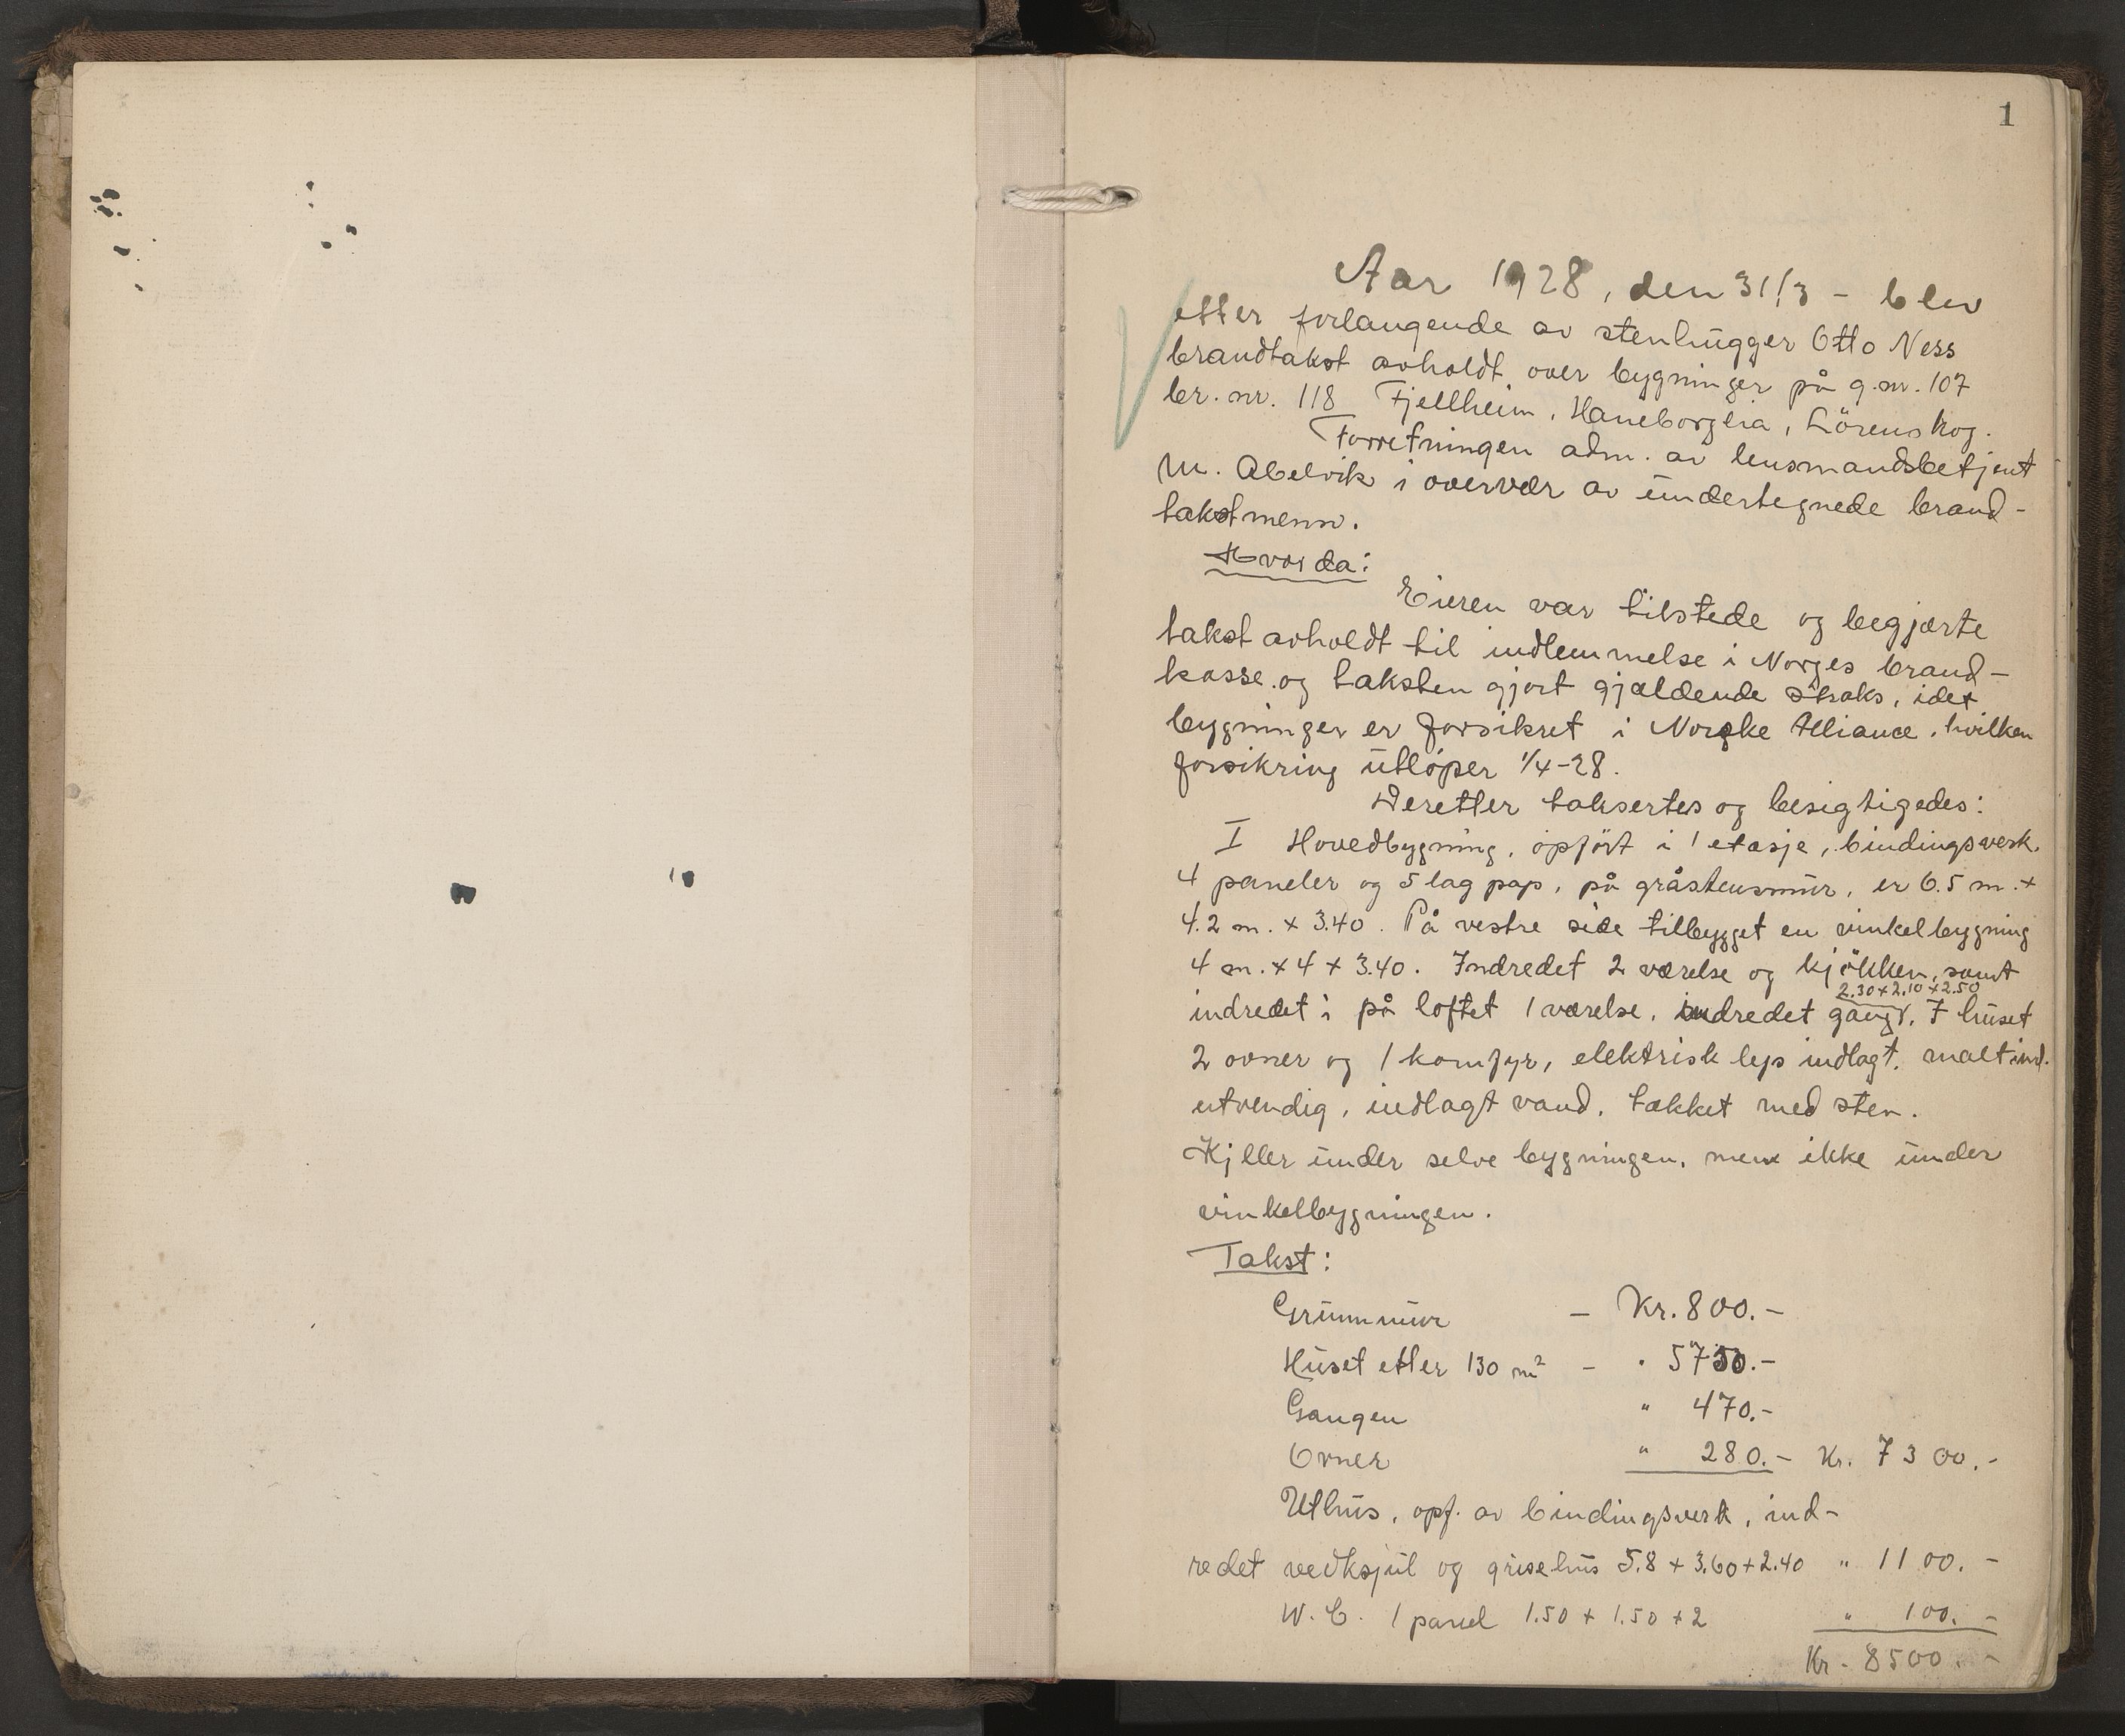 1
Aar 1928, den 31/3 - blev
efter forlangende av stenhugger Otto Ness
brandtakst avholdt over bygninger på g.nr. 107
br. nr. 118 Fjellheim, Haneborglia, Lörenskog.
Forretningen adm. av lensmandsbetjent
M. Abelvik i overvær av undertegnede brand-
takstmenn.
Hvorda:
Eieren var tilstede og begjærte
takst avholdt til indlemmelse i Norges brand-
kasse og taksten gjort gjældende straks, idet
bygninger er forsikret i Norske Alliance, hvilken
forsikring utløper 1/4-28.
Deretter taksertes og besigtigedes:
I Hovedbygning, opført i 1 etasje, bindingsverk.
4 paneler og 5 lag pap, på gråstensmur, er 6.5 m. x
4.2 m. x 3.40. På vestre side tilbygget en vinkelbygning
4 m. x 4 x 3.40. Indredet 2 værelse og kjökken, samt
2.30 x 2.10 x 2.50
indredet i på loftet 1 værelse, indredet gang. I huset
2 ovner og 1 komfyr, elektrisk lys indlagt, malt ind.
utvendig, indlagt vand, takket med sten.
Kjller under selve bygningen, men ikke under
vinkelbygningen.
Takst:
Grunnmur - Kr. 800.-
Huset etter 130 m² - " 5750.-
Gangen " 470.-
Ovner " 280.- Kr. 7300.-
Uthus, opf. av bindingsverk, ind-
redet vedksjul og grisehus 5.8 x 3.60 x 2.40 " 1100.-
W.C. 1 panel 1.50 x 1.50 x 2 " 100.-
Kr. 8500.-